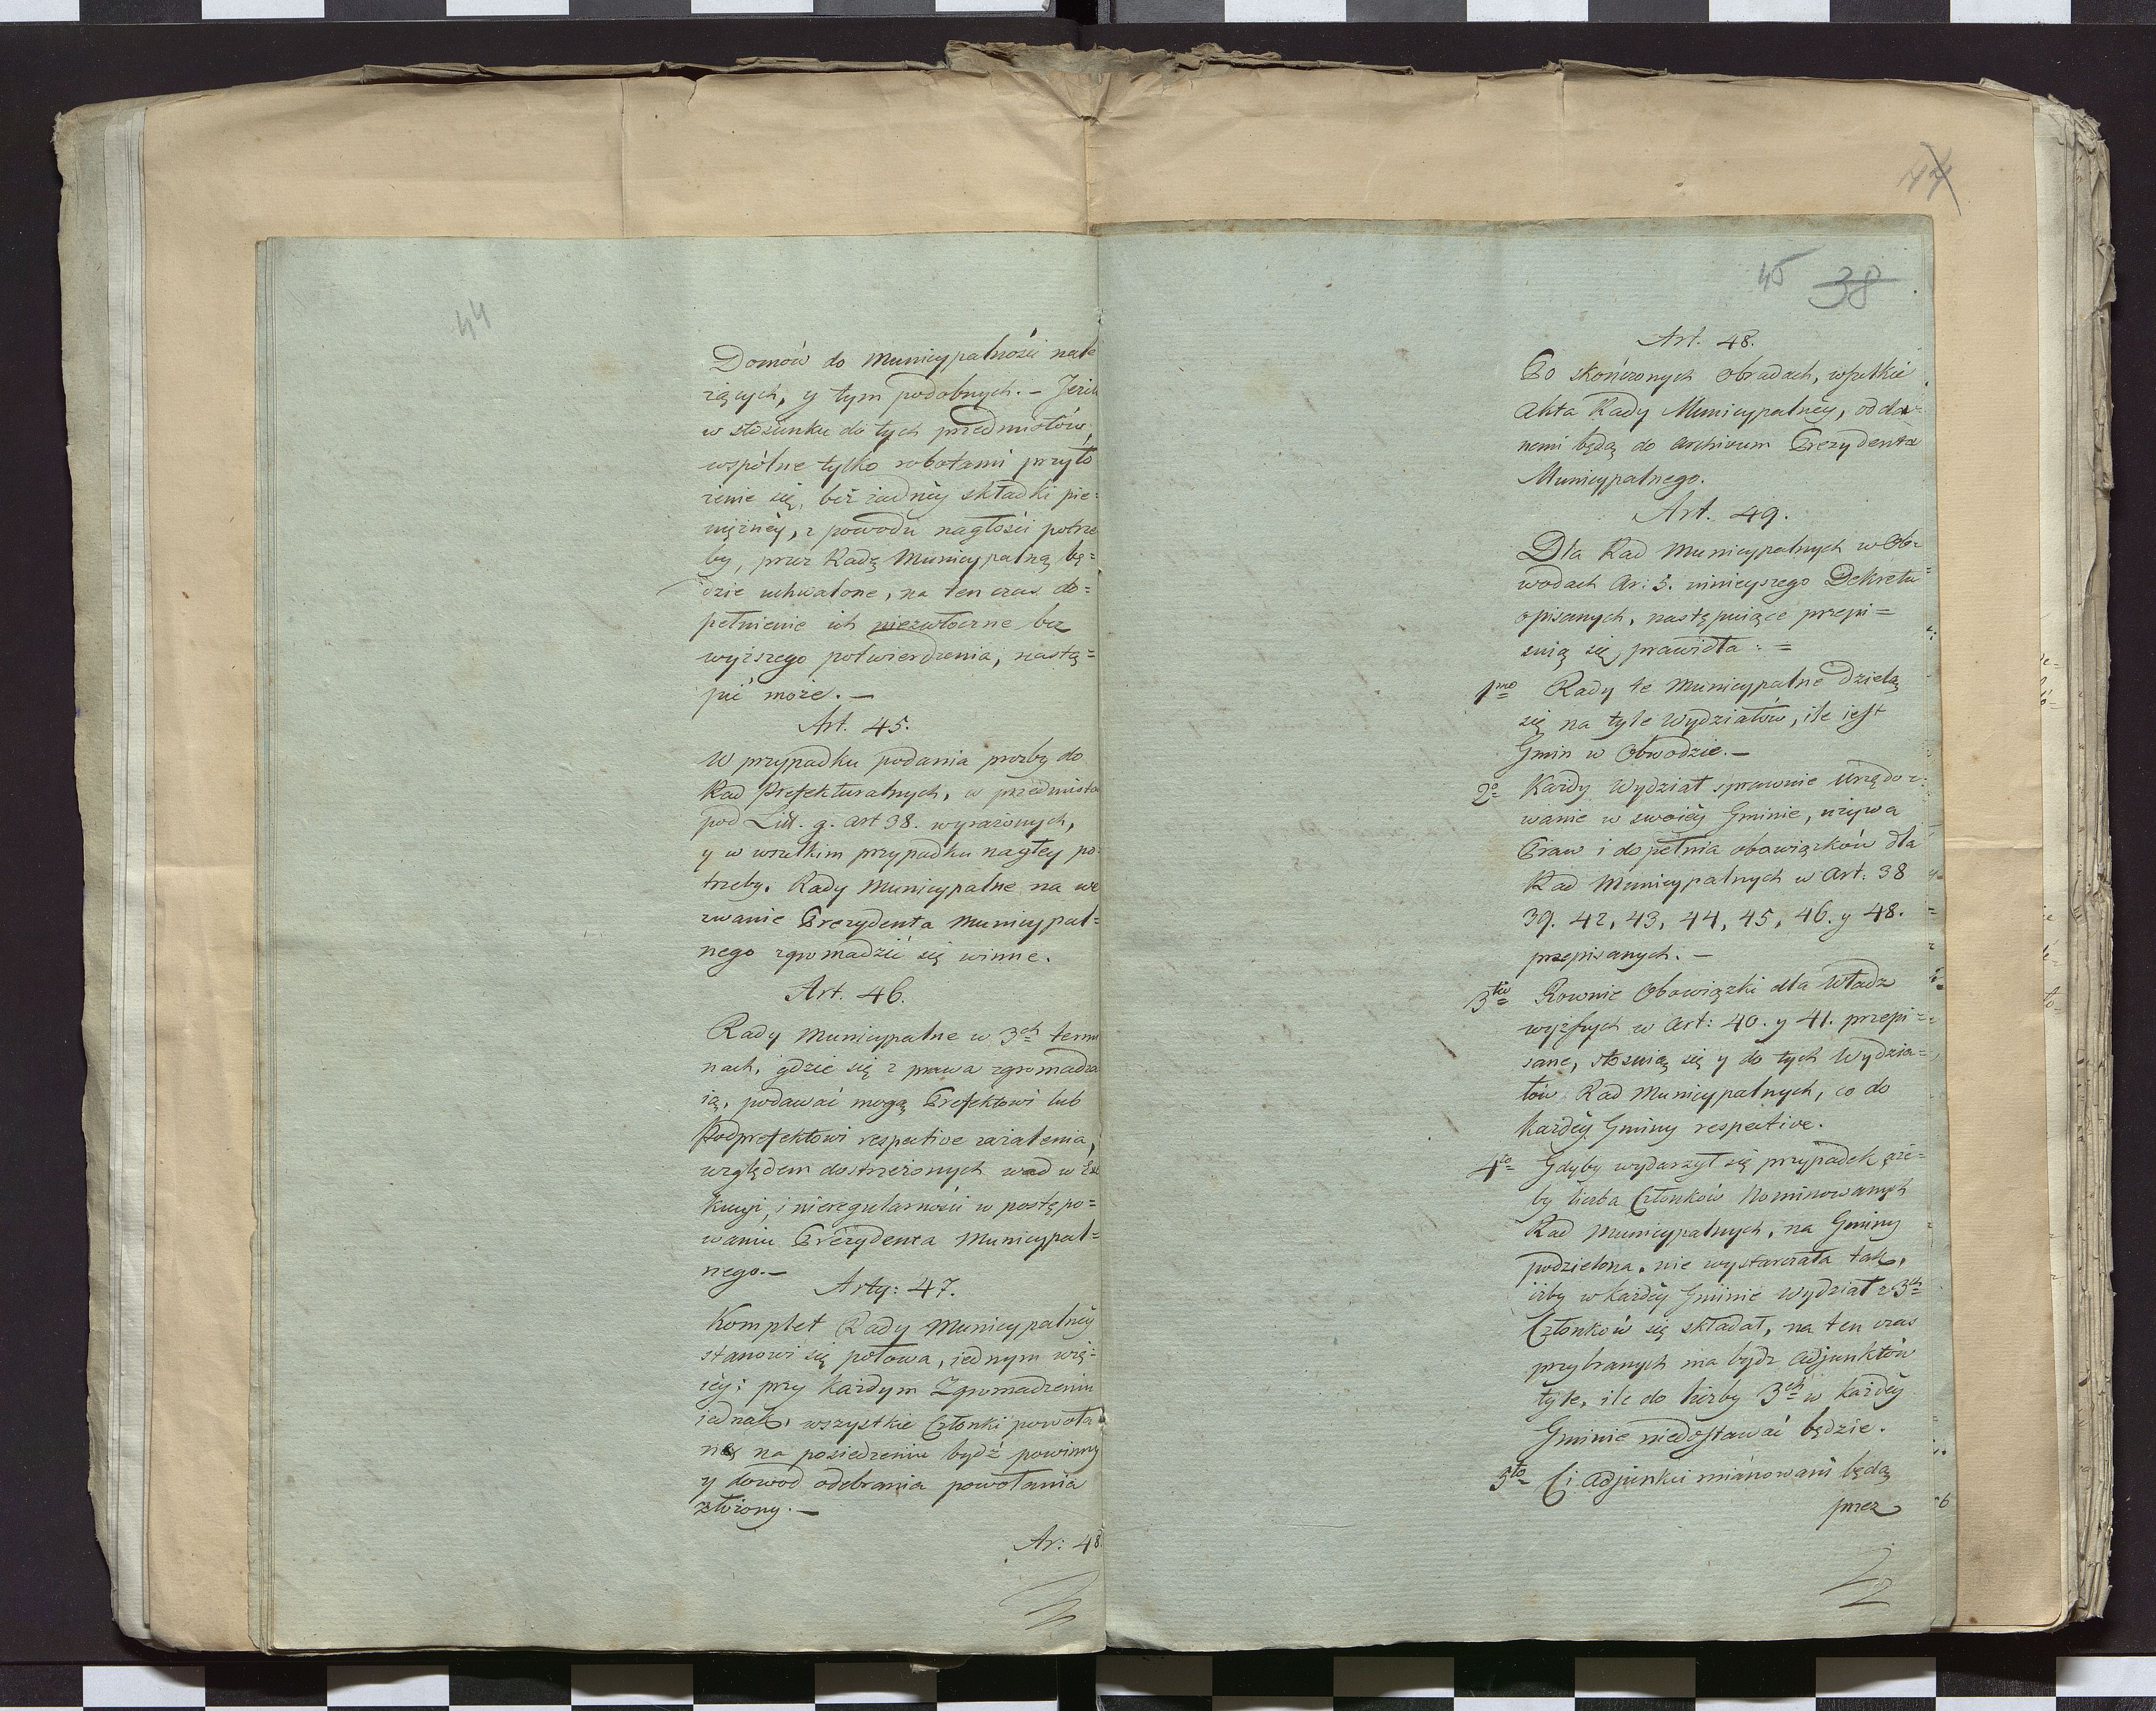 44
Domów do Municypalności nale
zących, y tym podobnych. — Jeżeli
w stosunku do tych przedmiotów,
wspólne tylko robotami przyło
żenie się, beż żadnéy składki pie=
niężnéy, z powodu nagłości potrze
by, przez Radę Municypalną bę=
dzie uchwalone, na ten czas do=
pełnienie ich niezwłoczne bez
wyższego potwierdzenia, nastą=
pić może. —
Art. 45.
W przypadku podania proźby do
Rad Prefekturalnych, w przedmiota
pod Litt. g. art 38. wyrażonych,
y w wszelkim przypadku nagłey po
trzeby. Rady Municypalne na we
zwanie Prezydenta Municypal=
nego zgromadzić się winne.
Art. 46.
Rady Municypalne w 3ch termi
nach, gdzie się z prawa zgromadza
ią, podawać mogą Prefektowi lub
Podprefektowi respective zażalenia,
względem dostrzeżonych wad w Exe
kucyi, i nieregularności w postępo=
waniu Prezydenta Municypal=
nego. —
Arty: 47.
Komplet Rady Municypalnéy
stanowi się połowa, iednym wię=
céy; przy każdym Zgromadzeniu
iednak, wszystkie Członki powoła
ne na posiedzeniu bydź powinny
y dowod odebrania powołania
złożony. —
Ar: 48.
44
45 38
Art. 48.
Po skończonych obradach, wszelkie
Akta Rady Municypalnéy, odda=
nemi będą do Archivum Prezydenta
Municypalnego.
Art. 49.
Dla Rad Municypalnych w Ob=
wodach Ar: 5. ninieyszego Dekretu
opisanych, następuiące przepi=
suią się, prawidła: =
1mo Rady te Municypalne dzielą
się na tyle Wydziałów, ile iest
Gmin w Obwodzie. —
2o Każdy Wydział sprawuie Urzędo=
wanie w swoiéy Gminie, używa
Praw i dopełnia obowiązków dla
Rad Municypalnych w Art: 38
39. 42, 43, 44, 45, 46. y 48.
przepisanych. —
3tio Rownie Obowiązki dla Władz
wyższych w Art: 40. y 41. przepi=
sane, stosuią się y do tych Wydzia=
łów Rad Municypalnych, co do
każdéy Gminy respective.
4to Gdyby wydarzył się przypadek, że=
by liczba Członków Nominowanych
Rad Municypalnych, na Gminy
podzielona, nie wystarczała tak,
iżby w każdéy Gminie Wydział z 3ch
Członków się składał, na ten czas
przybranych ma bydz Adjunktów
tyle, ile do liczby 3ch w każdéy
Gminie niedostawać będzie.
5to Ci Adjunkci mianowani będą
przez